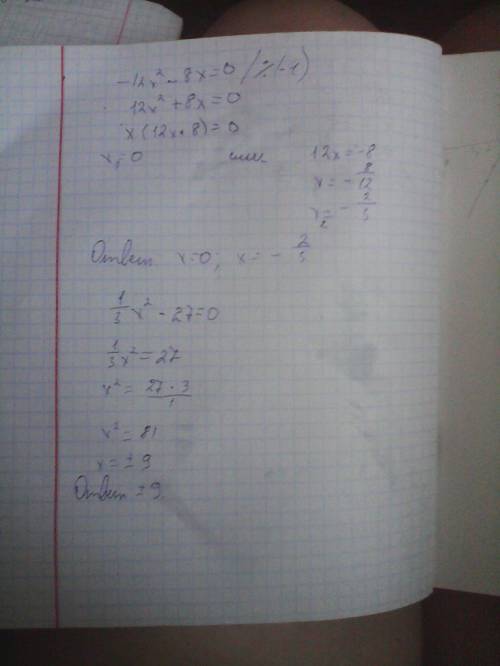 -12x² - 8x = 0 / : (-1)
12x² + 8x = 0
x(12x+8) = 0
x₁=0 или 12x = -8
x = - 8/12
x₂ = - 2/3
Ответ x=0; x = - 2/3
1/3 x² - 27=0
1/3 x² = 27
x² = 27 · 3/1
x² = 81
x = ± 9
Ответ ± 9